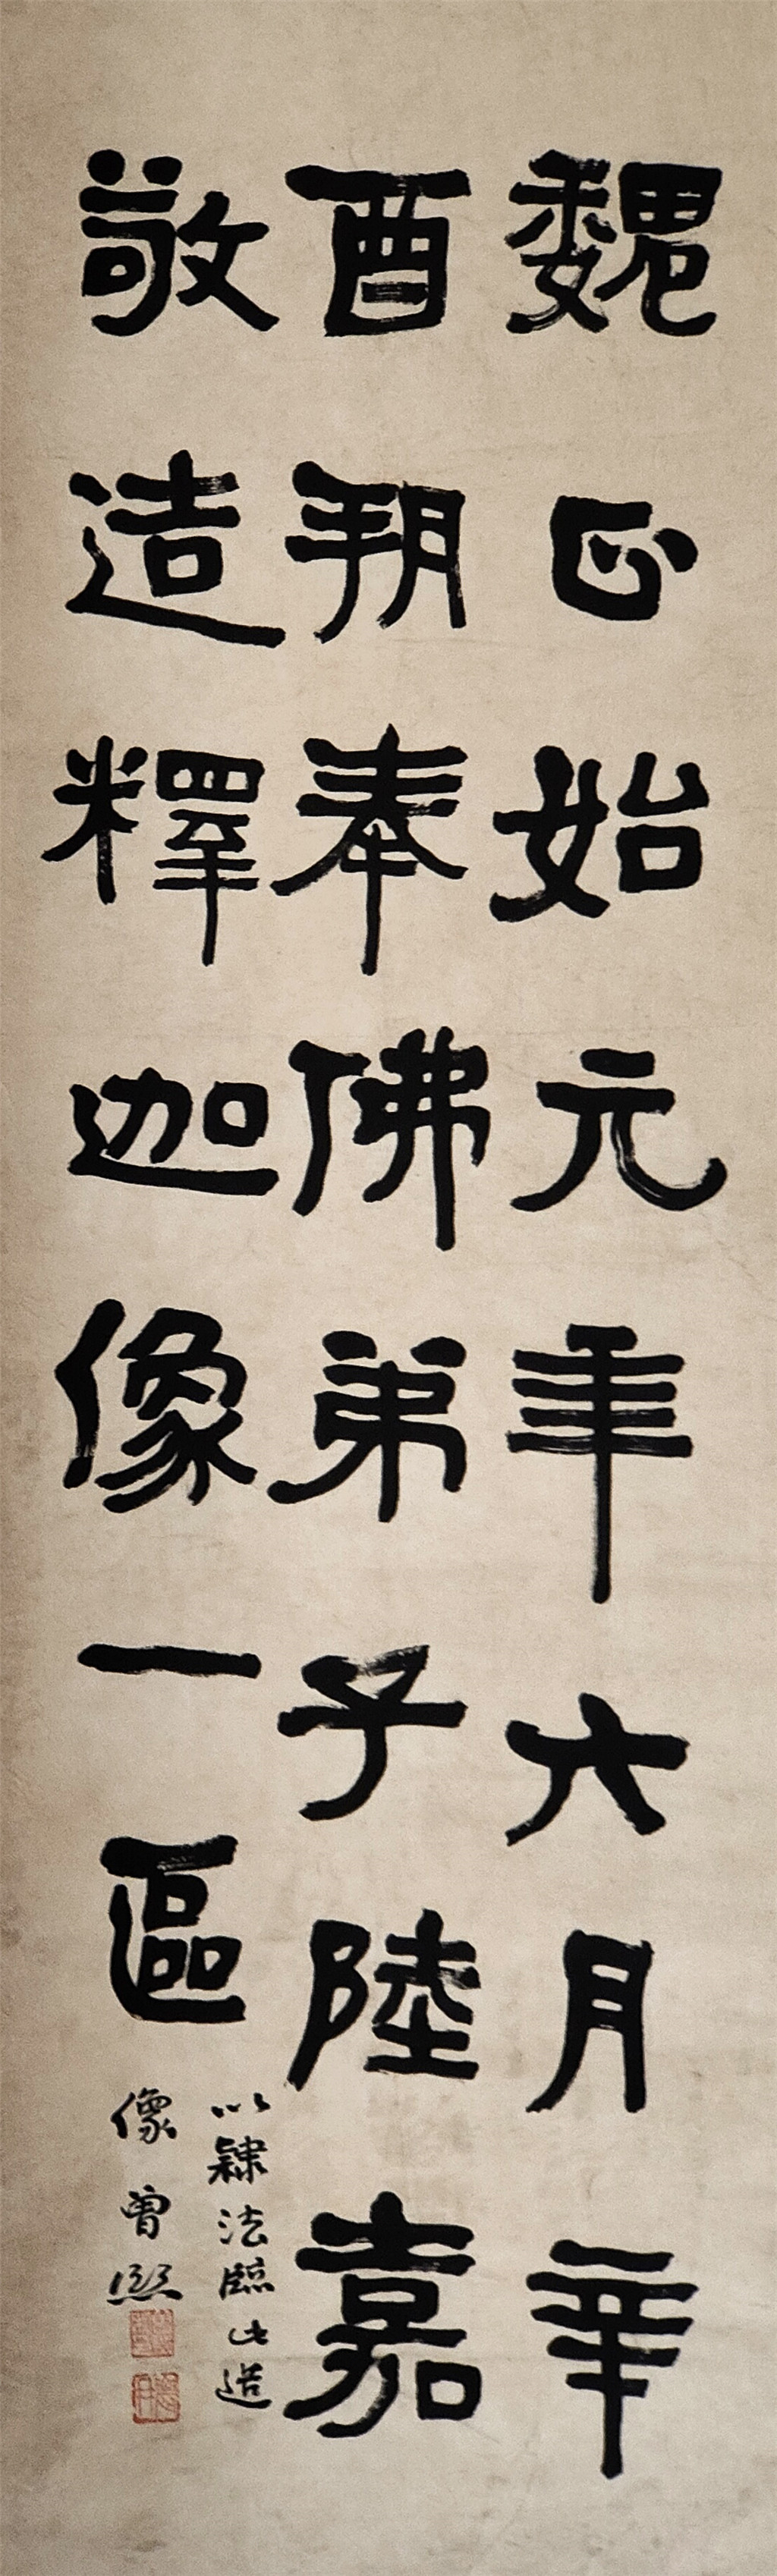 魏正始元年六月辛
酉朔奉佛弟子陸嘉
敬造釋迦像一區
以隸法臨此造
像曾熙